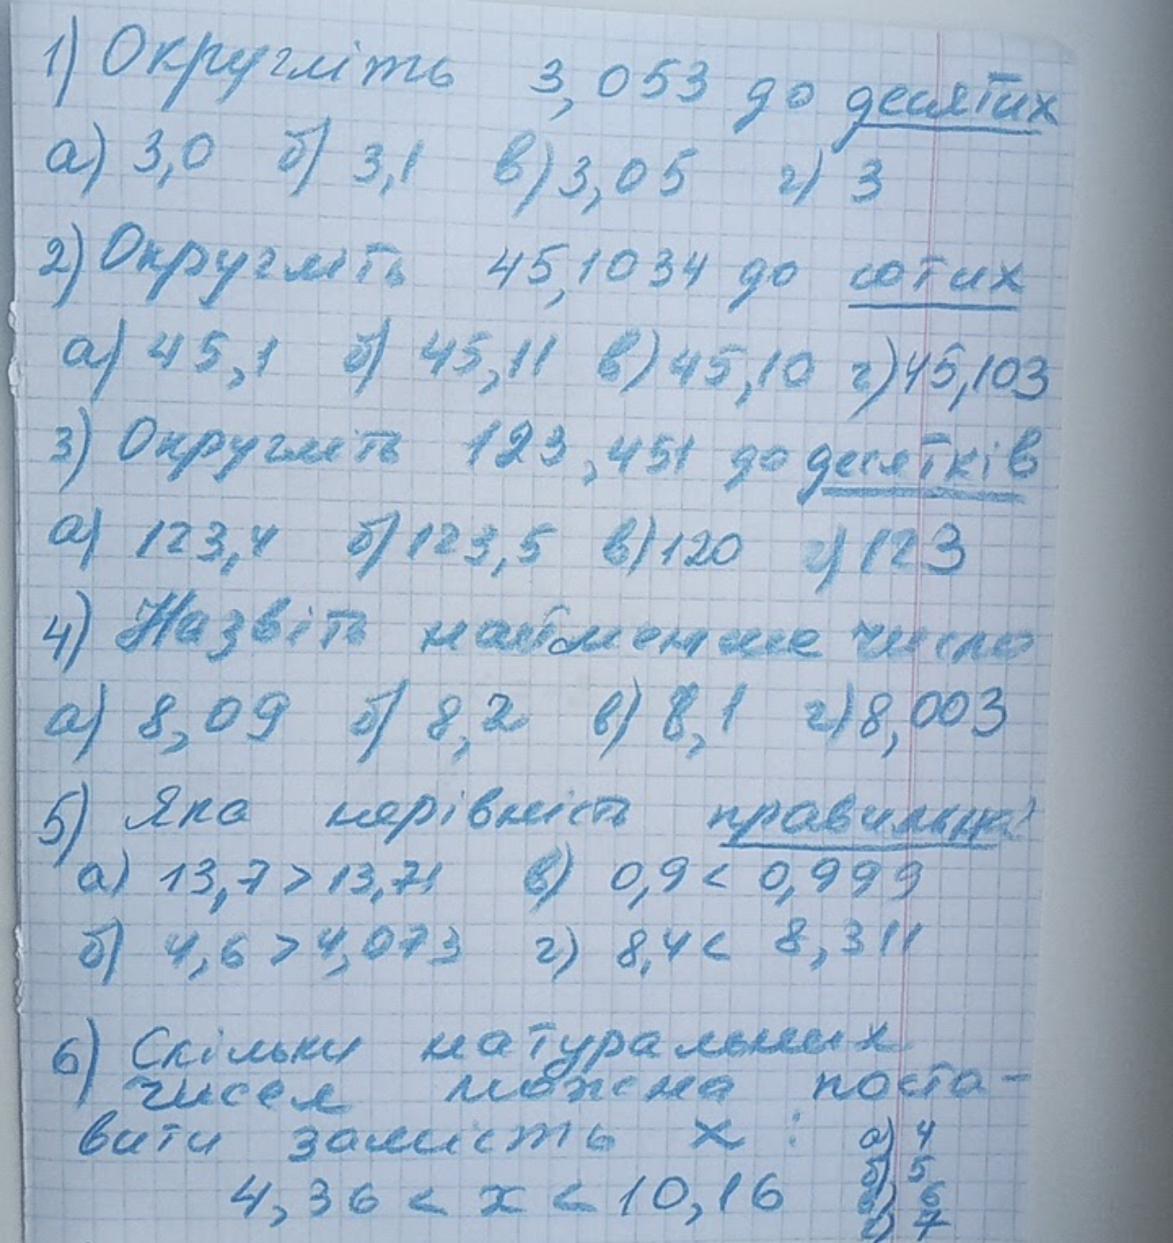 1) Округліть 3,053 до десятих
а) 3,0 б) 3,1 в) 3,05 г) 3
2) Округліть 45,1034 до сотих
а) 45,1 б) 45,11 в) 45,10 г) 45,103
3) Округліть 123,451 до десятків
а) 123,4 б) 123,5 в) 120 г) 123
4) Назвіть найменше число
а) 8,09 б) 8,2 в) 8,1 г) 8,003
5) Яка нерівність правильна?
а) 13,7 > 13,71 в) 0,9 < 0,999
б) 4,6 > 4,073 г) 8,4 < 8,311
6) Скільки натуральних
чисел можна поста-
вити замість х : а) 4
б) 5
4,36 < х < 10,16 в) 6
г) 7